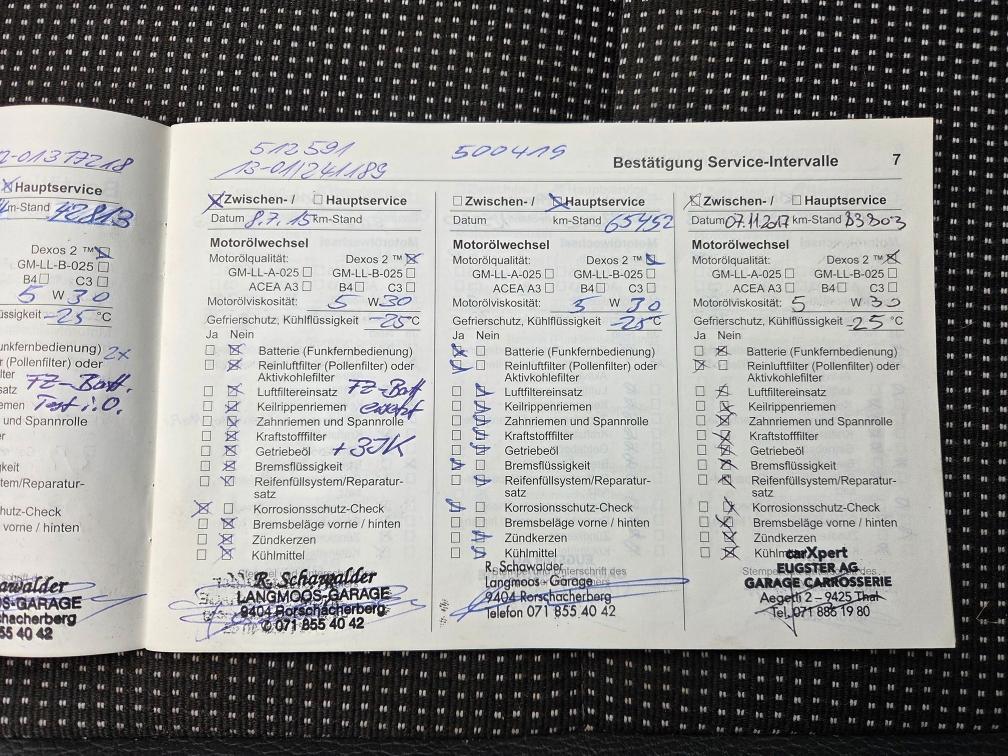 2-01317218
Hauptservice
km-Stand 42813
Dexos 2 ™
GM-LL-B-025
B4 C3
5 W 30
üssigkeit -25 °C
unkfernbedienung) 2x
r (Pollenfilter) oder
lter
satz FZ-Batt.
emen Test i.O.
und Spannrolle
er
gkeit
tem/Reparatur-
chutz-Check
vorne / hinten
awalder
OS-GARAGE
chacherberg
55 40 42
Bestätigung Service-Intervalle 7
512591
13-011241189
Zwischen- / Hauptservice
Datum 8.7.15 km-Stand
Motorölwechsel
Motorölqualität: Dexos 2 ™
GM-LL-A-025 GM-LL-B-025
ACEA A3 B4 C3
Motorölviskosität: 5 W 30
Gefrierschutz, Kühlflüssigkeit -25 °C
Ja Nein
Batterie (Funkfernbedienung)
Reinluftfilter (Pollenfilter) oder
Aktivkohlefilter
Luftfiltereinsatz FZ-Batt
Keilrippenriemen ersetzt
Zahnriemen und Spannrolle
Kraftstofffilter
Getriebeöl +3JK
Bremsflüssigkeit
Reifenfüllsystem/Reparatur-
satz
Korrosionsschutz-Check
Bremsbeläge vorne / hinten
Zündkerzen
Kühlmittel
R. Schawalder
LANGMOOS-GARAGE
9404 Rorschacherberg
✆ 071 855 40 42
500419
Zwischen- / Hauptservice
Datum km-Stand 65452
Motorölwechsel
Motorölqualität: Dexos 2 ™
GM-LL-A-025 GM-LL-B-025
ACEA A3 B4 C3
Motorölviskosität: 5 W 30
Gefrierschutz, Kühlflüssigkeit -25 °C
Ja Nein
Batterie (Funkfernbedienung)
Reinluftfilter (Pollenfilter) oder
Aktivkohlefilter
Luftfiltereinsatz
Keilrippenriemen
Zahnriemen und Spannrolle
Kraftstofffilter
Getriebeöl
Bremsflüssigkeit
Reifenfüllsystem/Reparatur-
satz
Korrosionsschutz-Check
Bremsbeläge vorne / hinten
Zündkerzen
Kühlmittel
Stempel und Unterschrift des
R. Schawalder
Langmoos-Garage
9404 Rorschacherberg
Telefon 071 855 40 42
Zwischen- / Hauptservice
Datum 07.11.2017 km-Stand 83803
Motorölwechsel
Motorölqualität: Dexos 2 ™
GM-LL-A-025 GM-LL-B-025
ACEA A3 B4 C3
Motorölviskosität: 5 W 30
Gefrierschutz, Kühlflüssigkeit -25 °C
Ja Nein
Batterie (Funkfernbedienung)
Reinluftfilter (Pollenfilter) oder
Aktivkohlefilter
Luftfiltereinsatz
Keilrippenriemen
Zahnriemen und Spannrolle
Kraftstofffilter
Getriebeöl
Bremsflüssigkeit
Reifenfüllsystem/Reparatur-
satz
Korrosionsschutz-Check
Bremsbeläge vorne / hinten
Zündkerzen
Kühlmittel
carXpert
EUGSTER AG
GARAGE CARROSSERIE
Aegetli 2 - 9425 Thal
Tel. 071 886 19 80